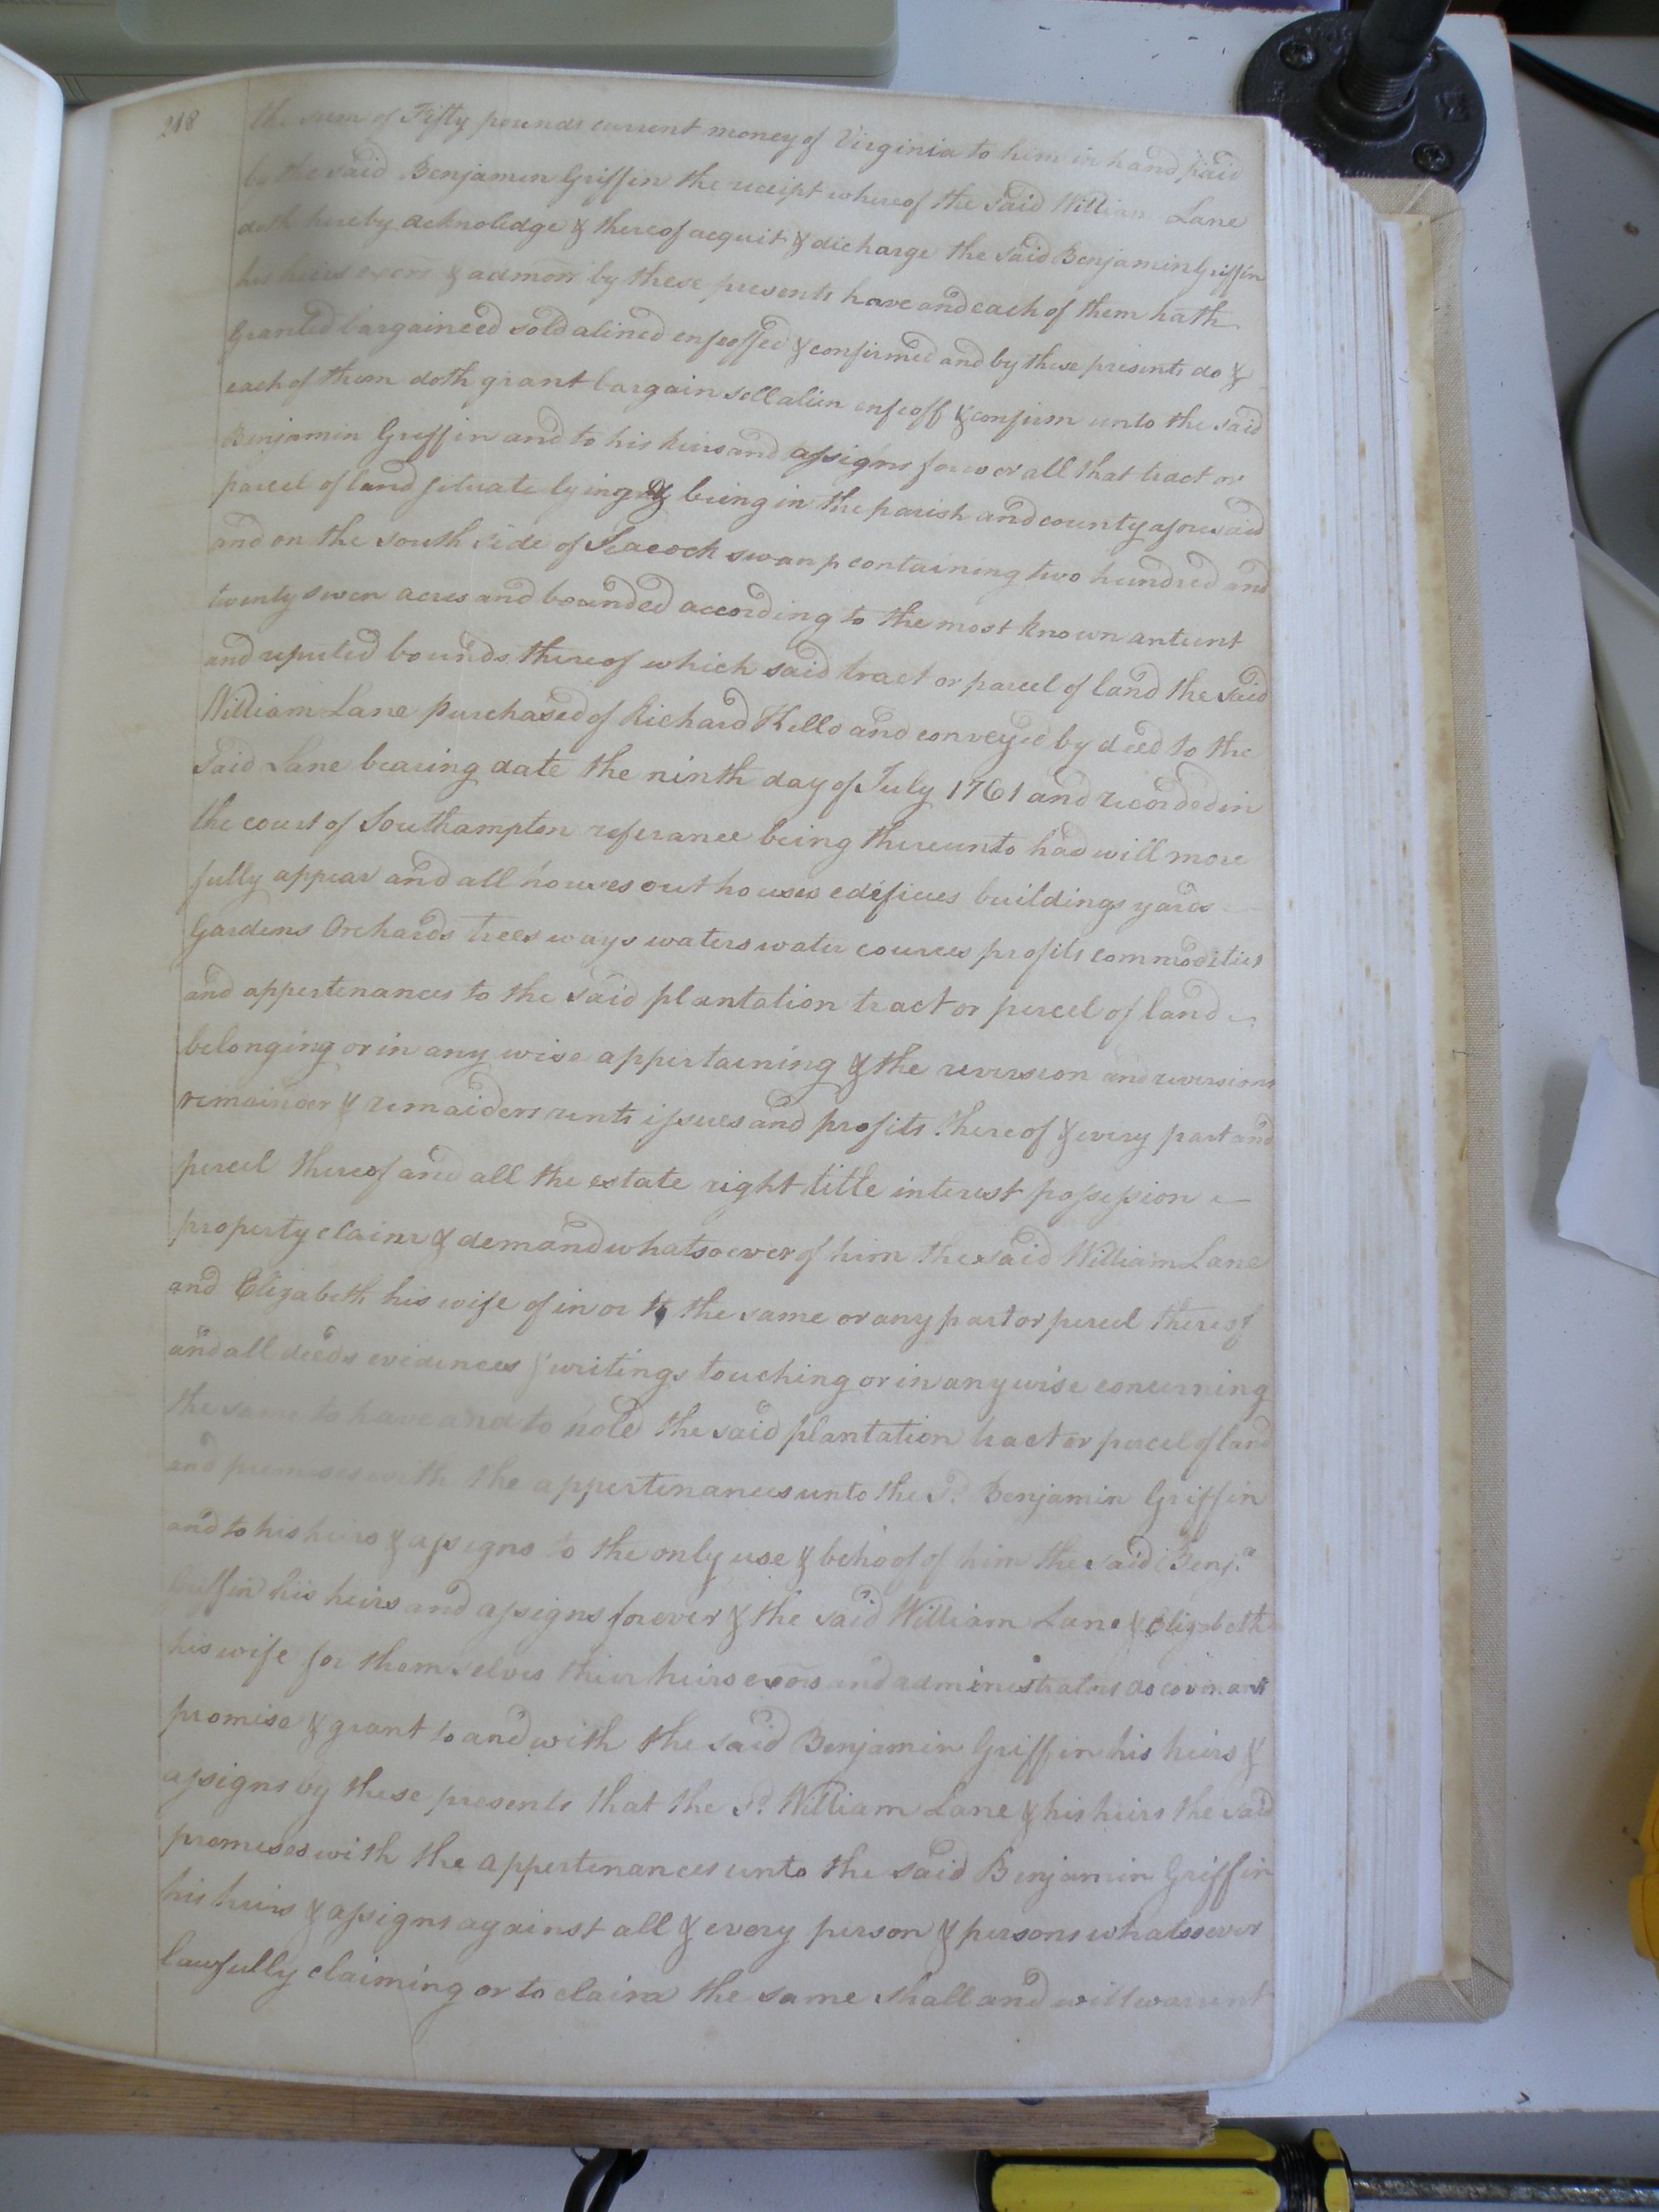 218
the sum of Fifty pounds current money of Virginia to him in hand paid
by the said Benjamin Griffin the receipt whereof the said William Lane
doth hereby acknolidge & thereof acquit & dicharge the said Benjamin Griffin
his heirs exors & admors by these presents have and each of them hath
Granted bargaineed sold alined enfeoffed & confirmed and by these presents do &
each of them doth grant bargain sell alien enfeoff & confirm unto the said
Benjamin Griffin and to his heirs and assigns forever all that tract or
parcel of land situate lying & being in the parish and county aforesaid
and on the south side of Seacock swamp containing two hundred and
twenty seven acres and bounded according to the most known antient
and reputed bounds thereof which said tract or parcel of land the said
William Lane purchased of Richard Kello and conveyed by deed to the
said Lane bearing date the ninth day of July 1761 and recorded in
the court of Southampton referance being thereunto had will more
fully appear and all houses out houses edifices buildings yards
Gardens Orchards trees ways waters water cources profits commodities
and appertenances to the said plantation tract or percel of land
belonging or in any wise appertaening & the reversion and reversions
remainder & remaiders rents issues and profits thereof & every part and
percel thereof and all the estate right title interest possession &
property claim & demand whatsoever of him the said William Lane
and Elizabeth his wife of in or to the same or any part or percel thereof
and all deeds evidences & writings touching or in any wise concerning
the same to have and to hold the said plantation tract or percel of land
and premises with the appertenances unto the Sd. Benjamin Griffin
and to his heirs & assigns to the only use & behoof of him the said Benja.
Griffin his heirs and assigns forever & the said William Lane & Elizabeth
his wife for themselves their heirs exors and administrators do covinant
promise & grant to and with the said Benjamin Griffin his heirs &
assigns by these presents that the Sd. William Lane & his heirs the said
premises with the appertenances unto the said Benjamin Griffin
his heirs & assigns against all & every person & persons whatsoever
lawfully claiming or to claim the same shall and will warrent